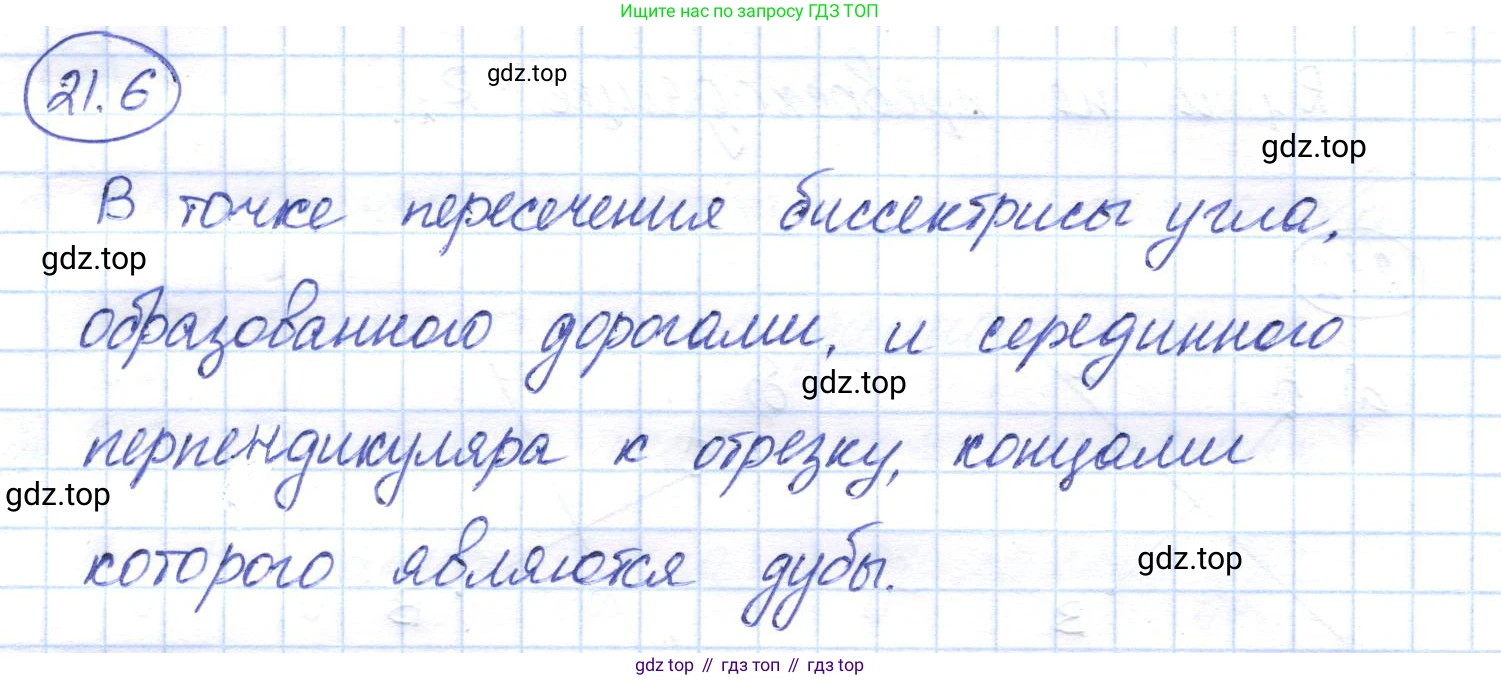 Ищите нас по запросу ГДЗ ТОП
21.6
gdz.top
gdz.top
В точке пересечения биссектрисы угла,
gdz.top
образованного дорогами, и серединного
gdz.top
перпендикуляра к отрезку, концами
gdz.top
которого являются дубы.
gdz.top
gdz top // гдз топ // гдз top